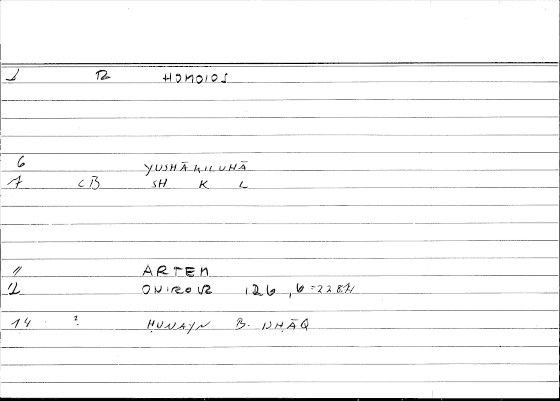 1 HOMOIOS
6 YUSHĀKILUHĀ
7 CB SH K L
11 ARTEM
12 ONIROCR 126,6 = 228,
14 ? ḤUNAYN B. ISḤĀQ